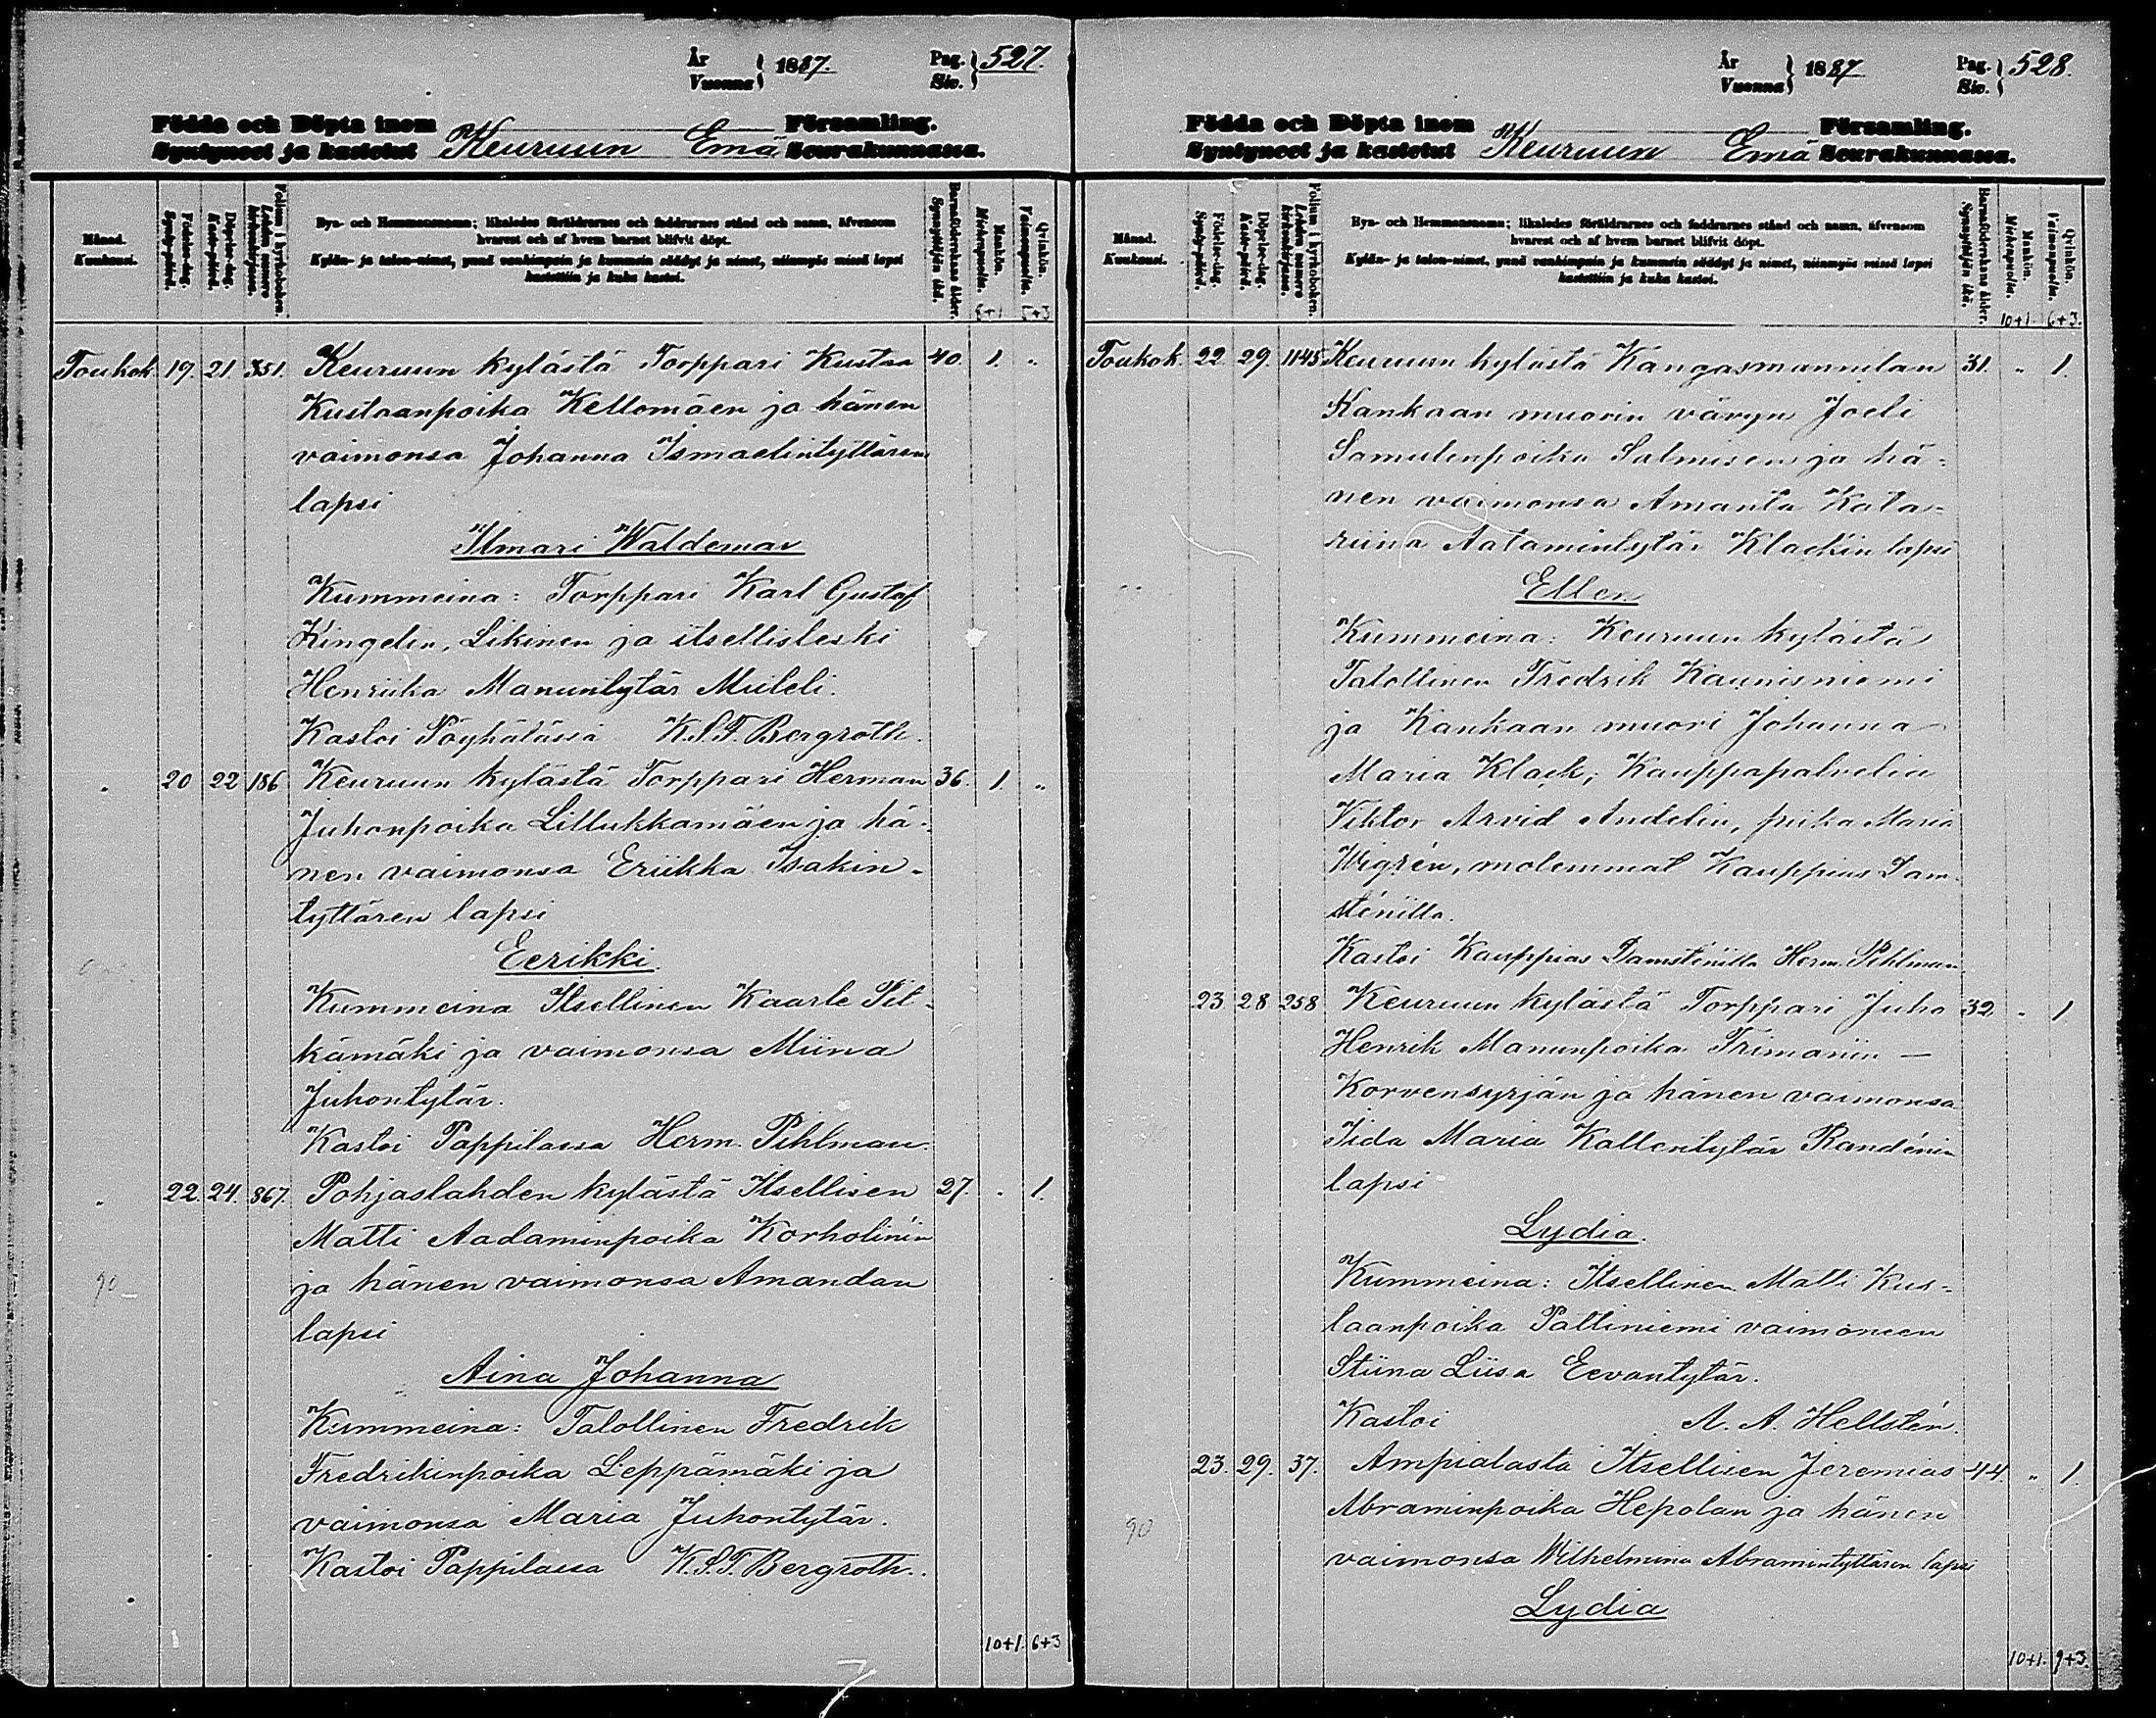 År
Vuonna } 1887.
Pag.
Siv. } 527.
Födda och Döpta inom Församling.
Syntyneet ja kastetut Keuruun Emä Seurakunnassa.
Månad.
Kuukausi.
Födelse-dag.
Synty-päivä.
Döpelse-dag.
Kaste-päivä.
Folium i kyrkoboken.
Lehden numero kirkonkirjassa.
Bya- och Hemmansnamn; likaledes föräldrarnes och faddrarnes stånd och namn, äfvensom
hvarest och af hvem barnet blifvit döpt.
Kylän- ja talon-nimet, ynnä vanhimpain ja kummein säädyt ja nimet, niinmyös missä lapsi
kastettiin ja kuka kastoi.
Barnaföderskans ålder.
Synnyttäjän ikä.
Mankön.
Miehenpuolia.
Qvinkön.
Vaimonpuolia.
Toukok. 19. 21. 351. Keuruun kylästä Torppari Kustaa 40. 1. "
Kustaanpoika Kellomäen ja hänen
vaimonsa Johanna Ismaelintyttären
lapsi
Ilmari Waldemar
Kummeina: Torppari Karl Gustaf
Kingelin, Likinen ja itsellisleski
Henriika Manuntytär
Kastoi Pöyhölässä K.S.F. Bergroth.
" 20 22 186 Keuruun kylästä Torppari Herman 36. 1. "
Juhonpoika Lillukkamäen ja hä-
nen vaimonsa Eriikka Isakin-
tyttären lapsi
Eerikki.
Kummeina Itsellinen Kaarle Pit-
kämäki ja vaimonsa Miina
Juhontytär.
Kastoi Pappilassa Herm. Pihlman.
" 22. 24. 867. Pohjaslahden kylästä Itsellisen 27. " 1.
Matti Aadaminpoika Korholinin
ja hänen vaimonsa Amandan
90
lapsi
Aina Johanna
Kummeina: Talollinen Fredrik
Fredrikinpoika Leppämäki ja
vaimonsa Maria Juhontytär.
Kastoi Pappilassa K.S.F. Bergroth.
10+1. 6+3
År
Vuonna } 1887
Pag.
Siv. } 528.
Födda och Döpta inom Församling.
Syntyneet ja kastetut Keuruun Emä Seurakunnassa.
Månad.
Kuukausi.
Födelse-dag.
Synty-päivä.
Döpelse-dag.
Kaste-päivä.
Folium i kyrkoboken.
Lehden numero kirkonkirjassa.
Bya- och Hemmansnamn; likaledes föräldrarnes och faddrarnes stånd och namn, äfvensom
hvarest och af hvem barnet blifvit döpt.
Kylän- ja talon-nimet, ynnä vanhimpain ja kummein säädyt ja nimet, niinmyös missä lapsi
kastettiin ja kuka kastoi.
Barnaföderskans ålder.
Synnyttäjän ikä.
Mankön.
Miehenpuolia.
Qvinkön.
Vaimonpuolia.
10+1. 6+3.
Toukok. 22. 29. 1145 Keuruun kylästä Kangasmannilan 31. " 1.
Kankaan muorin vävyn Joeli
Samulenpoika Salmisen ja hä-
nen vaimonsa Amanta Kata-
riina Aatamintytär Klackin lapsi
Ellen
Kummeina: Keuruun kylästä
Talollinen Fredrik Kaunisniemi
ja Kankaan muori Johanna
Maria Klack; Kauppapalvelia
Viktor Arvid Andelin, piika Maria
Wigrén, molemmat Kauppias Dam-
sténilla.
Kastoi Kauppias Damsténilla Herm. Pihlman.
23. 28 258 Keuruun kylästä Torppari Juho 32. " 1
Henrik Manunpoika Frimanin —
Korvensyrjän ja hänen vaimonsa
Iida Maria Kallentytär Randénin
lapsi
Lydia.
Kummeina: Itsellinen Matti Kus-
taanpoika Paltiniemi vaimoneen
Stiina Liisa Eevantytär.
Kastoi A. A. Hellstén.
23. 29. 37. Ampialasta Itsellisen Jeremias 44. " 1.
Abraminpoika Hepolan ja hänen
90
vaimonsa Wilhelmina Abramintyttären lapsi
Lydia
10+1. 9+3.